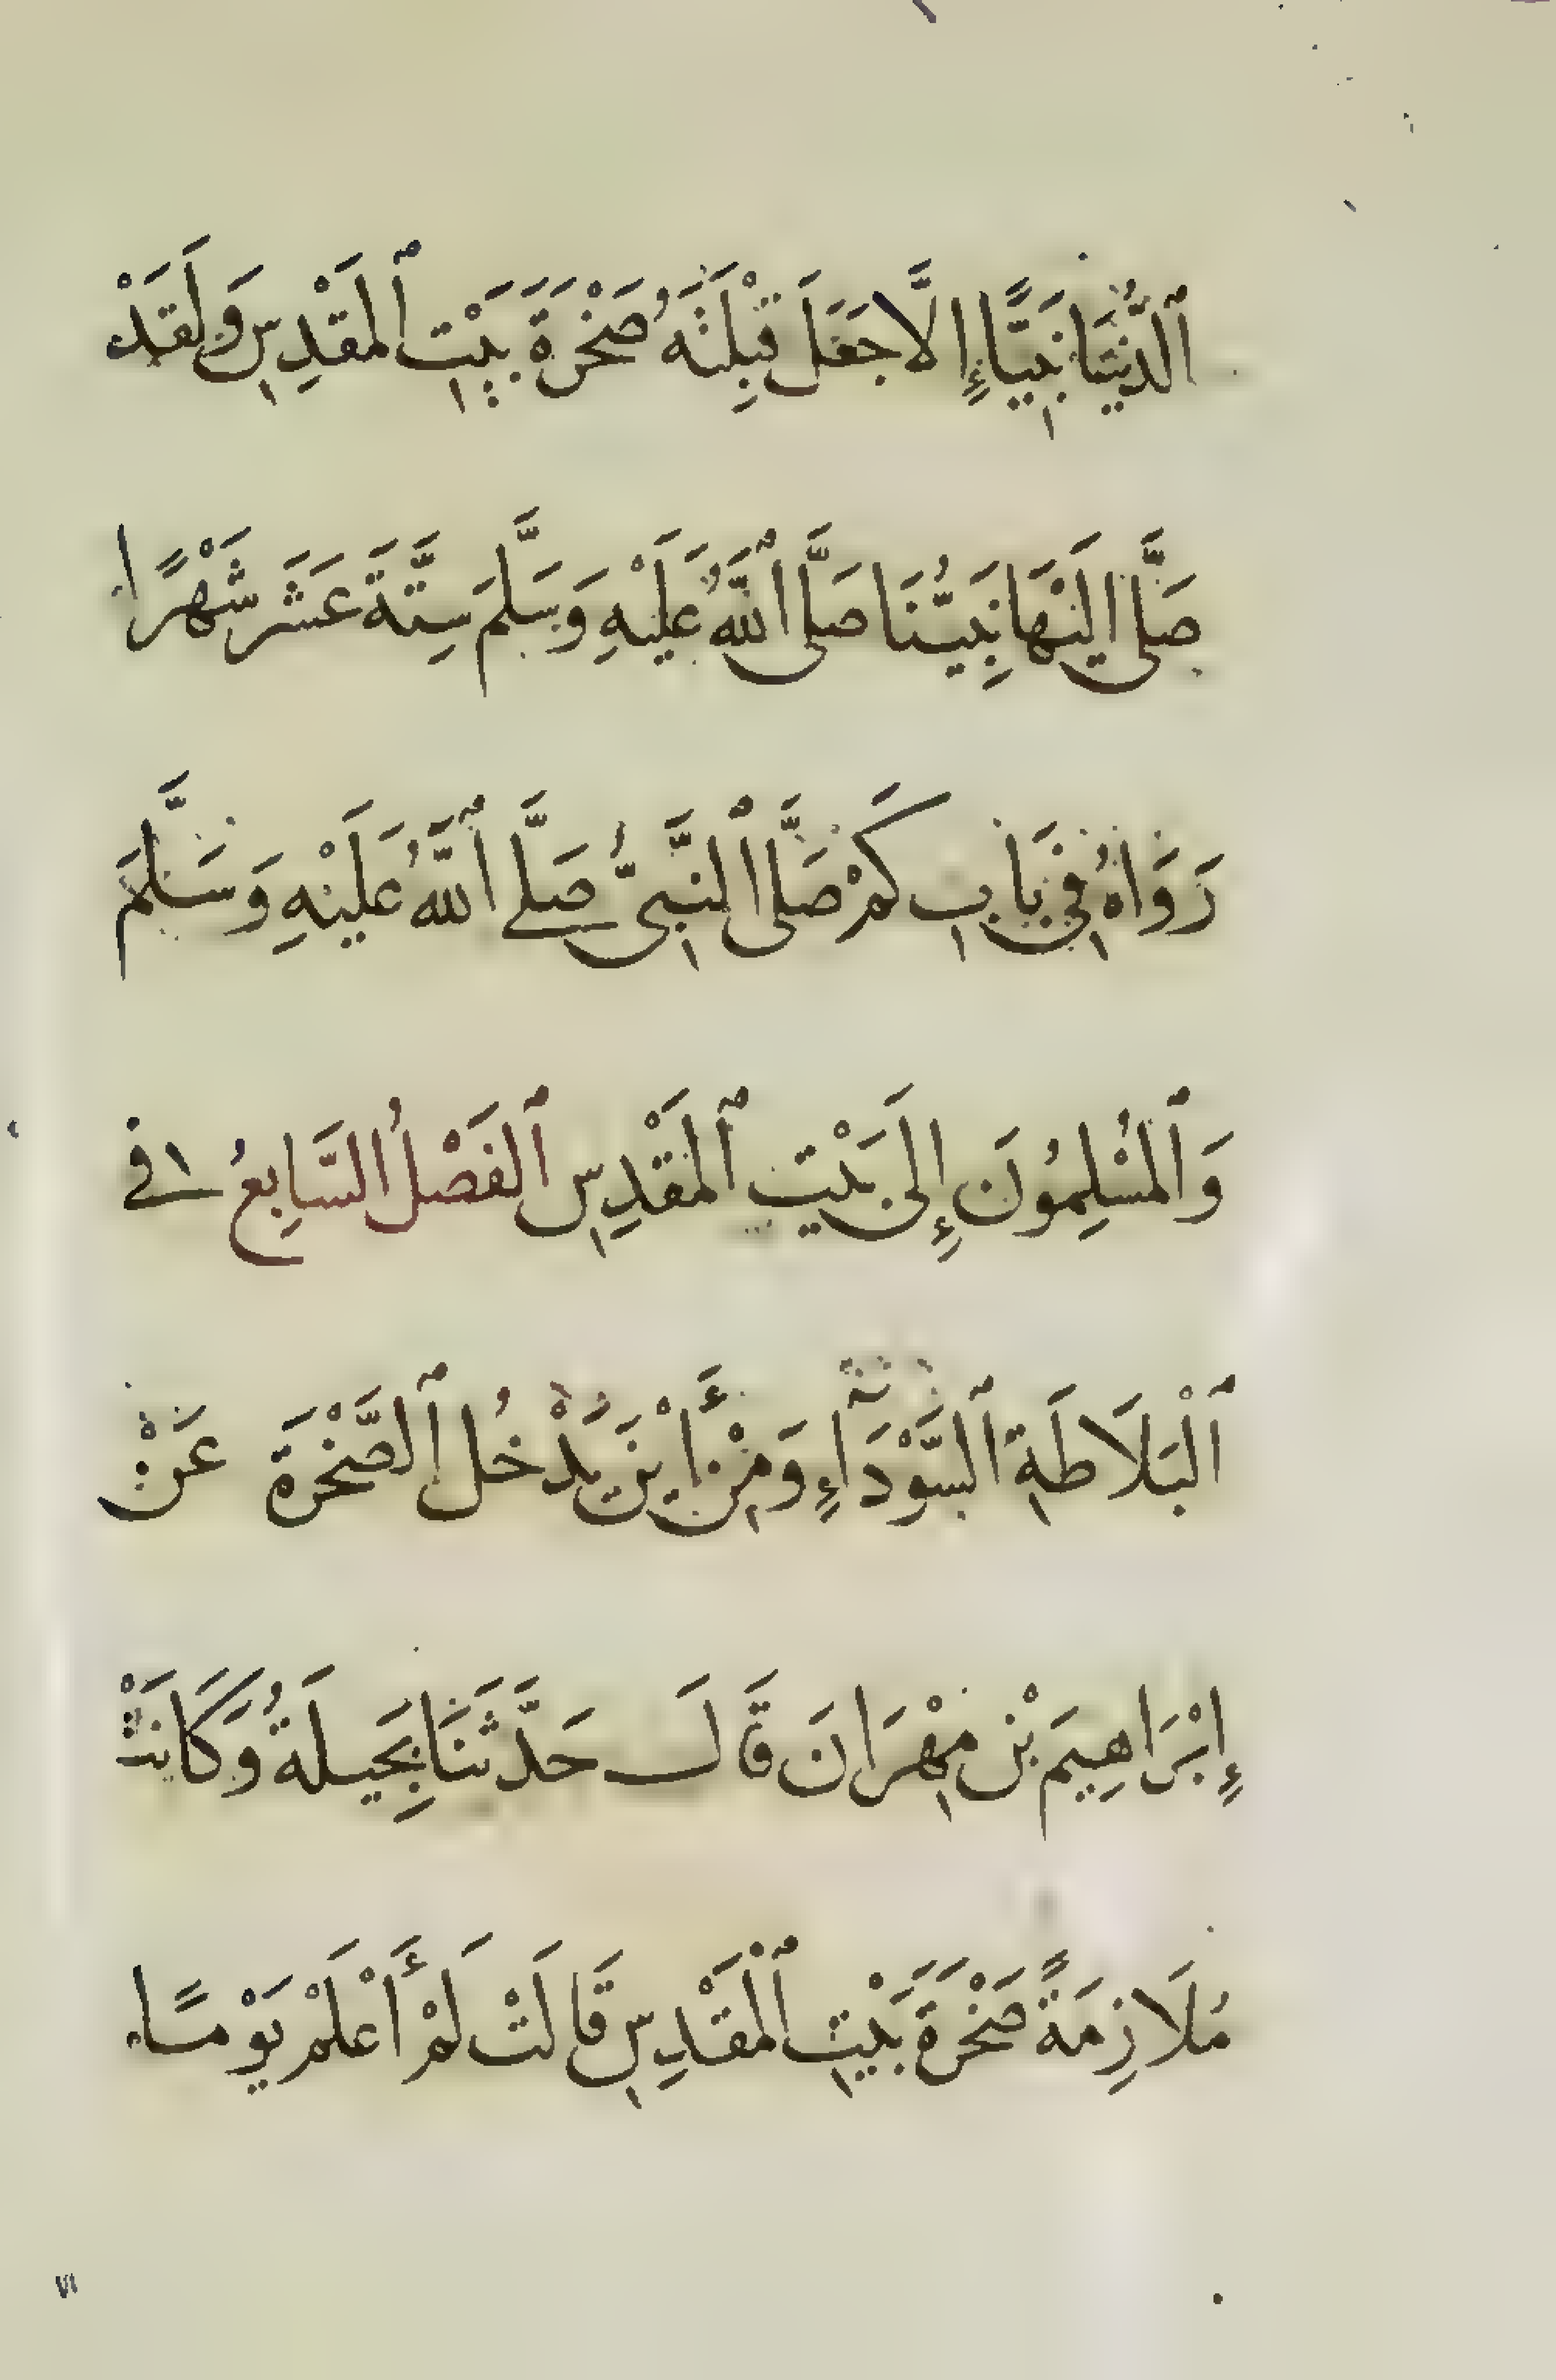 ٱلدُّنْيَا نَبِيًّا إِلَّا جَعَلَ قِبْلَتَهُ صَخْرَةَ بَيْتِ ٱلمَقْدِسِ وَلَقَدْ
صَلَّى إلَيْهَا نَبِيُّنَا صَلَّى ٱللَّهُ عَلَيْهِ وَسَلَّمَ سِتَّةَ عَشَرَ شَهْرًا
رَوَاهُ فِي بَابِ كَمْ صَلَّى ٱلنَّبِيُّ صَلَّى ٱللَّهُ عَلَيْهِ وَسَلَّمَ
وَٱلمُسْلِمُونَ إِلَى بَيْتِ ٱلمَقْدِسِ ٱلفَصْلُ السَّابِعُ ١ في
ٱلْبَلَاطَةِ ٱلسَّوْدَآءِ وَمِنْ أَيْنَ يَدْخُلُ ٱلصَّخْرَةَ عَنْ
إِبْرَاهِيمَ بْنِ مِهْرَانَ قَالَ حَدَّثَتْنَا بَجِيلَةُ وَكَانَتْ
مُلَازِمَةً صَخْرَةَ بَيْتِ ٱلْمَقْدِسِ قَالَتْ لَمْ أَعْلَمْ يَوْمًا
٧١